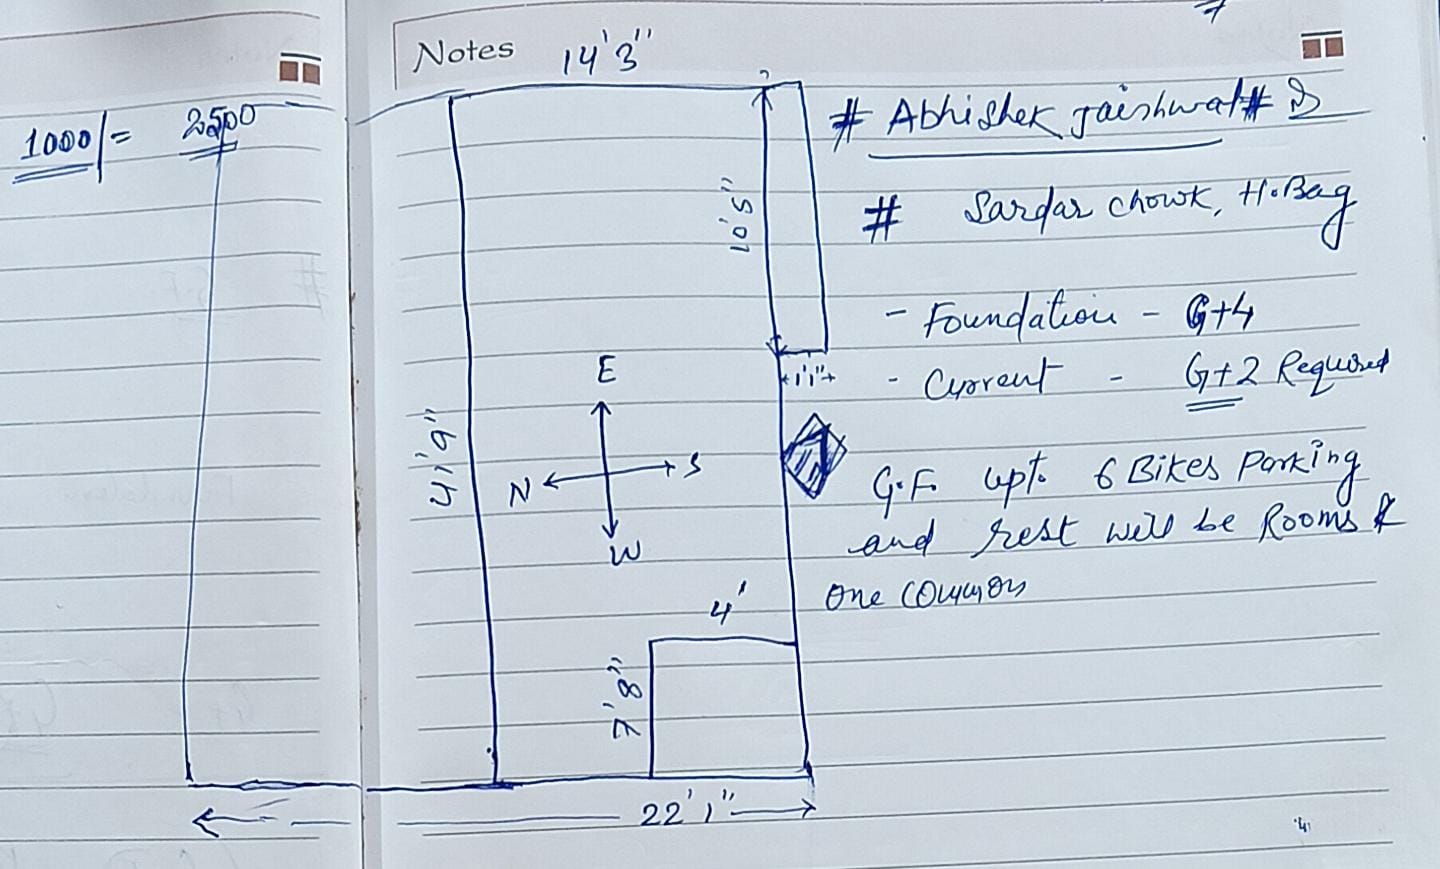 Notes
14'3"
1000/= 2500
# Abhishek Jaishwal #
# Sardar chowk, H.Bag
10'5"
- Foundation - G+4
1'1"
- Current - G+2 Required
E
N S
W
41'9"
G.F. upto 6 Bikes Parking
and rest will be Rooms &
one common
4'
7'8"
22'1"